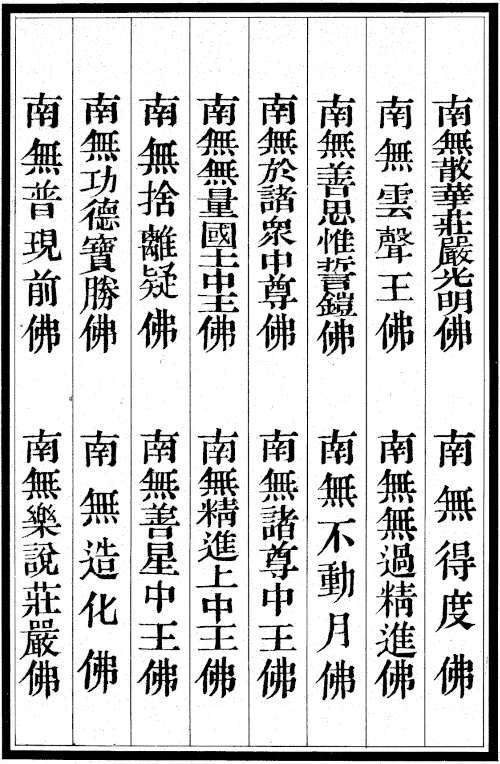 南無散華莊嚴光明佛
南無得度佛
南無雲聲王佛
南無無過精進佛
南無善思惟誓鎧佛
南無不動月佛
南無於諸眾中尊佛
南無諸尊中王佛
南無無量國土中王佛
南無精進上中王佛
南無捨離疑佛
南無善星中王佛
南無功德寶勝佛
南無造化佛
南無普現前佛
南無樂說莊嚴佛